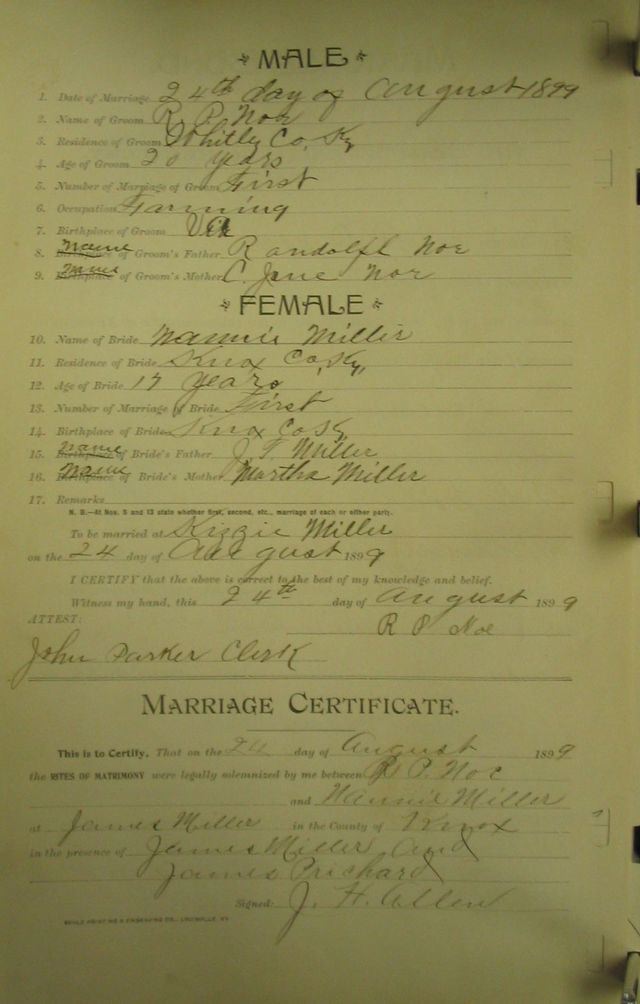 MALE
1. Date of Marriage 24th day of August 1899
2. Name of Groom R. P. Noe
3. Residence of Groom Whitley Co, Ky
4. Age of Groom 20 years
5. Number of Marriage of Groom First
6. Occupation Farming
7. Birthplace of Groom
8. Name of Groom's Father Randolph Noe
9. Name of Groom's Mother C. Jane Noe
FEMALE
10. Name of Bride Nannie Miller
11. Residence of Bride Knox Co, Ky,
12. Age of Bride 17 years
13. Number of Marriage of Bride First
14. Birthplace of Bride Knox Co Ky
15. Name of Bride's Father J. F. Miller
16. Name of Bride's Mother Martha Miller
17. Remarks
N. B.—At Nos. 5 and 13 state whether first, second, etc., marriage of each or either party.
To be married at Kizzie Miller
on the 24 day of August 1899
I CERTIFY that the above is correct to the best of my knowledge and belief.
Witness my hand, this 24th day of August 1899
ATTEST:
R P Noe
John Parker Clerk
MARRIAGE CERTIFICATE.
This is to Certify, That on the 24 day of August 1899
the RITES OF MATRIMONY were legally solemnized by me between R. P. Noe
and Nannie Miller
at James Miller in the County of Knox
in the presence of James Miller and
James Prichard
Signed: J. H. Allen